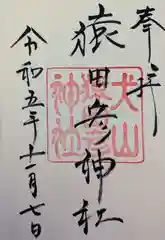 奉拝
猿田彦神社
犬山
猿田彦
神社
令和五年十一月七日